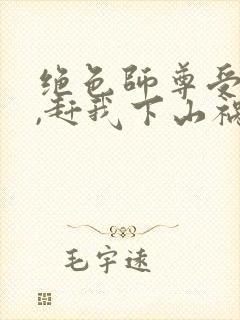 绝色师尊受
,赶我下山祸
毛宇逵